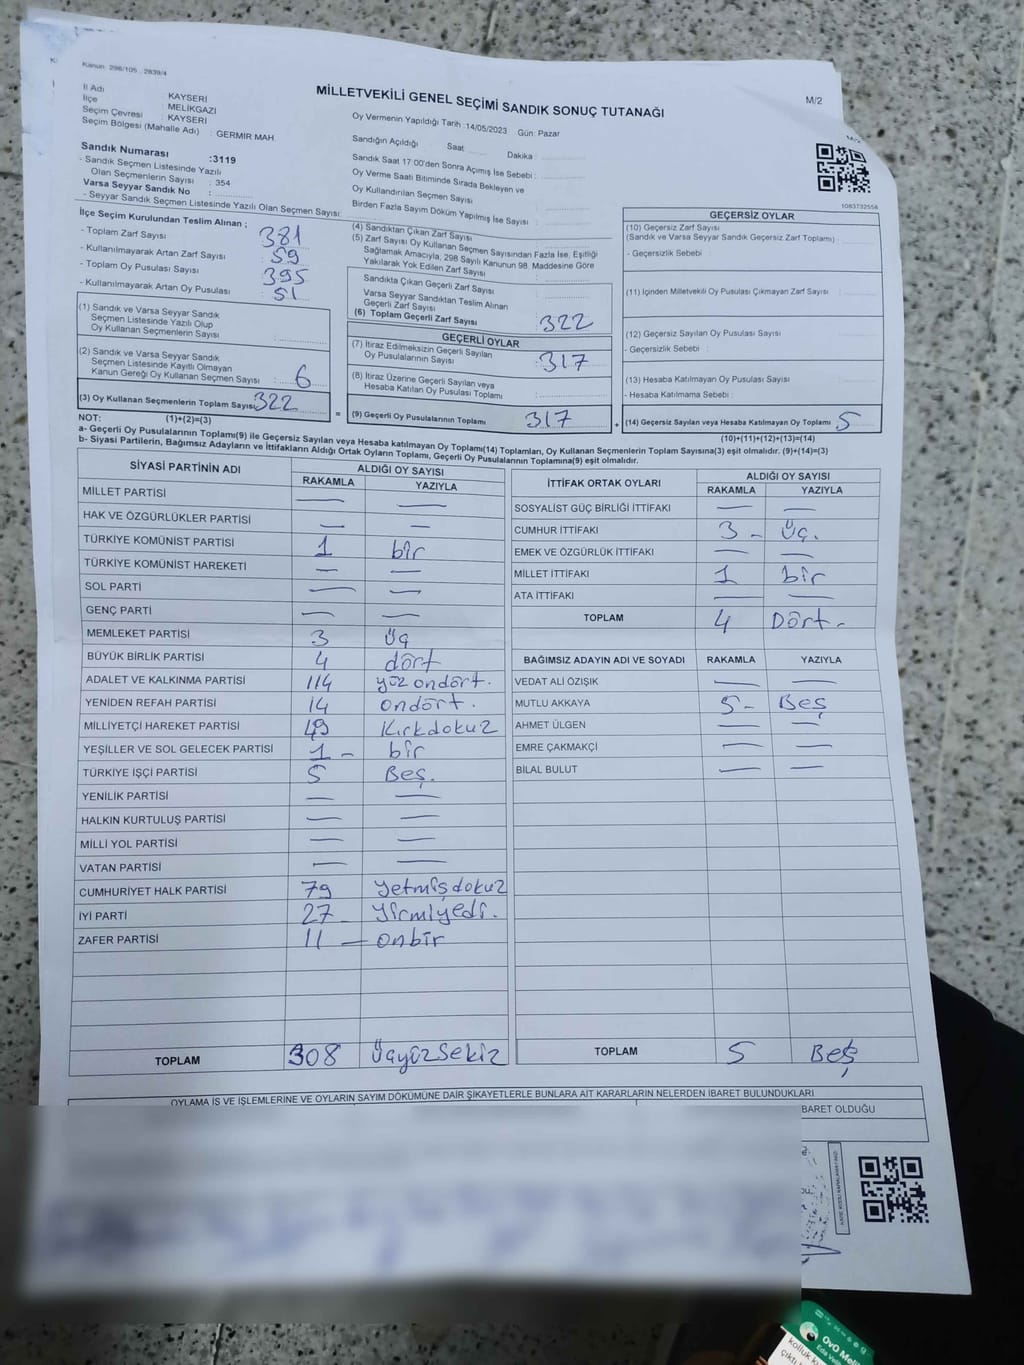 Kanun: 298/105 , 2839/4
MİLLETVEKİLİ GENEL SEÇİMİ SANDIK SONUÇ TUTANAĞI
M/2
İl Adı : KAYSERİ
İlçe : MELİKGAZİ
Seçim Çevresi : KAYSERİ
Seçim Bölgesi (Mahalle Adı) : GERMIR MAH.
Sandık Numarası :3119
- Sandık Seçmen Listesinde Yazılı
Olan Seçmenlerin Sayısı : 354
Varsa Seyyar Sandık No :
- Seyyar Sandık Seçmen Listesinde Yazılı Olan Seçmen Sayısı:
Oy Vermenin Yapıldığı Tarih :14/05/2023 Gün: Pazar
Sandığın Açıldığı Saat Dakika :
Sandık Saat 17:00'den Sonra Açımış İse Sebebi :
Oy Verme Saati Bitiminde Sırada Bekleyen ve
Oy Kullandırılan Seçmen Sayısı
Birden Fazla Sayım Döküm Yapılmış İse Sayısı :
1083732556
İlçe Seçim Kurulundan Teslim Alınan ;
- Toplam Zarf Sayısı : 381
- Kullanılmayarak Artan Zarf Sayısı : 59
- Toplam Oy Pusulası Sayısı : 395
- Kullanılmayarak Artan Oy Pusulası : 51
(1) Sandık ve Varsa Seyyar Sandık
Seçmen Listesinde Yazılı Olup
Oy Kullanan Seçmenlerin Sayısı :
(2) Sandık ve Varsa Seyyar Sandık
Seçmen Listesinde Kayıtlı Olmayan
Kanun Gereği Oy Kullanan Seçmen Sayısı : 6
(3) Oy Kullanan Seçmenlerin Toplam Sayısı 322
(4) Sandıktan Çıkan Zarf Sayısı
(5) Zarf Sayısı Oy Kullanan Seçmen Sayısından Fazla İse, Eşitliği
Sağlamak Amacıyla, 298 Sayılı Kanunun 98. Maddesine Göre
Yakılarak Yok Edilen Zarf Sayısı :
Sandıkta Çıkan Geçerli Zarf Sayısı
Varsa Seyyar Sandıktan Teslim Alınan
Geçerli Zarf Sayısı
(6) Toplam Geçerli Zarf Sayısı 322
GEÇERLİ OYLAR
(7) İtiraz Edilmeksizin Geçerli Sayılan
Oy Pusulalarının Sayısı : 317
(8) İtiraz Üzerine Geçerli Sayılan veya
Hesaba Katılan Oy Pusulası Toplamı :
= (9) Geçerli Oy Pusulalarının Toplamı 317
GEÇERSİZ OYLAR
(10) Geçersiz Zarf Sayısı
(Sandık ve Varsa Seyyar Sandık Geçersiz Zarf Toplamı) :
- Geçersizlik Sebebi :
(11) İçinden Milletvekili Oy Pusulası Çıkmayan Zarf Sayısı :
(12) Geçersiz Sayılan Oy Pusulası Sayısı :
- Geçersizlik Sebebi :
(13) Hesaba Katılmayan Oy Pusulası Sayısı :
- Hesaba Katılmama Sebebi :
+ (14) Geçersiz Sayılan veya Hesaba Katılmayan Oy Toplamı 5
NOT: (1)+(2)=(3)
(10)+(11)+(12)+(13)=(14)
a- Geçerli Oy Pusulalarının Toplamı(9) ile Geçersiz Sayılan veya Hesaba katılmayan Oy Toplamı(14) Toplamları, Oy Kullanan Seçmenlerin Toplam Sayısına(3) eşit olmalıdır. (9)+(14)=(3)
b- Siyasi Partilerin, Bağımsız Adayların ve İttifakların Aldığı Ortak Oyların Toplamı, Geçerli Oy Pusulalarının Toplamına(9) eşit olmalıdır.
SİYASİ PARTİNİN ADI ALDIĞI OY SAYISI
RAKAMLA YAZIYLA
MİLLET PARTİSİ — —
HAK VE ÖZGÜRLÜKLER PARTİSİ — —
TÜRKİYE KOMÜNİST PARTİSİ 1 bir
TÜRKİYE KOMÜNİST HAREKETİ — —
SOL PARTİ — —
GENÇ PARTİ — —
MEMLEKET PARTİSİ 3 üç
BÜYÜK BİRLİK PARTİSİ 4 dört
ADALET VE KALKINMA PARTİSİ 114 yüz ondört.
YENİDEN REFAH PARTİSİ 14 ondört.
MİLLİYETÇİ HAREKET PARTİSİ 49 Kırkdokuz
YEŞİLLER VE SOL GELECEK PARTİSİ 1 - bir
TÜRKİYE İŞÇİ PARTİSİ 5 Beş.
YENİLİK PARTİSİ — —
HALKIN KURTULUŞ PARTİSİ — —
MİLLİ YOL PARTİSİ — —
VATAN PARTİSİ — —
CUMHURİYET HALK PARTİSİ 79 yetmişdokuz
İYİ PARTİ 27 - yirmiyedi.
ZAFER PARTİSİ 11 — onbir
TOPLAM 308 üçyüzsekiz
İTTİFAK ORTAK OYLARI ALDIĞI OY SAYISI
RAKAMLA YAZIYLA
SOSYALİST GÜÇ BİRLİĞİ İTTİFAKI — —
CUMHUR İTTİFAKI 3 - Üç.
EMEK VE ÖZGÜRLÜK İTTİFAKI — —
MİLLET İTTİFAKI 1 bir
ATA İTTİFAKI — —
TOPLAM 4 Dört -
BAĞIMSIZ ADAYIN ADI VE SOYADI RAKAMLA YAZIYLA
VEDAT ALİ ÖZIŞIK — —
MUTLU AKKAYA 5 - Beş
AHMET ÜLGEN — —
EMRE ÇAKMAKÇİ — —
BİLAL BULUT — —
TOPLAM 5 Beş
OYLAMA İŞ VE İŞLEMLERİNE VE OYLARIN SAYIM DÖKÜMÜNE DAİR ŞİKAYETLERLE BUNLARA AİT KARARLARIN NELERDEN İBARET BULUNDUKLARI
BARET OLDUĞU